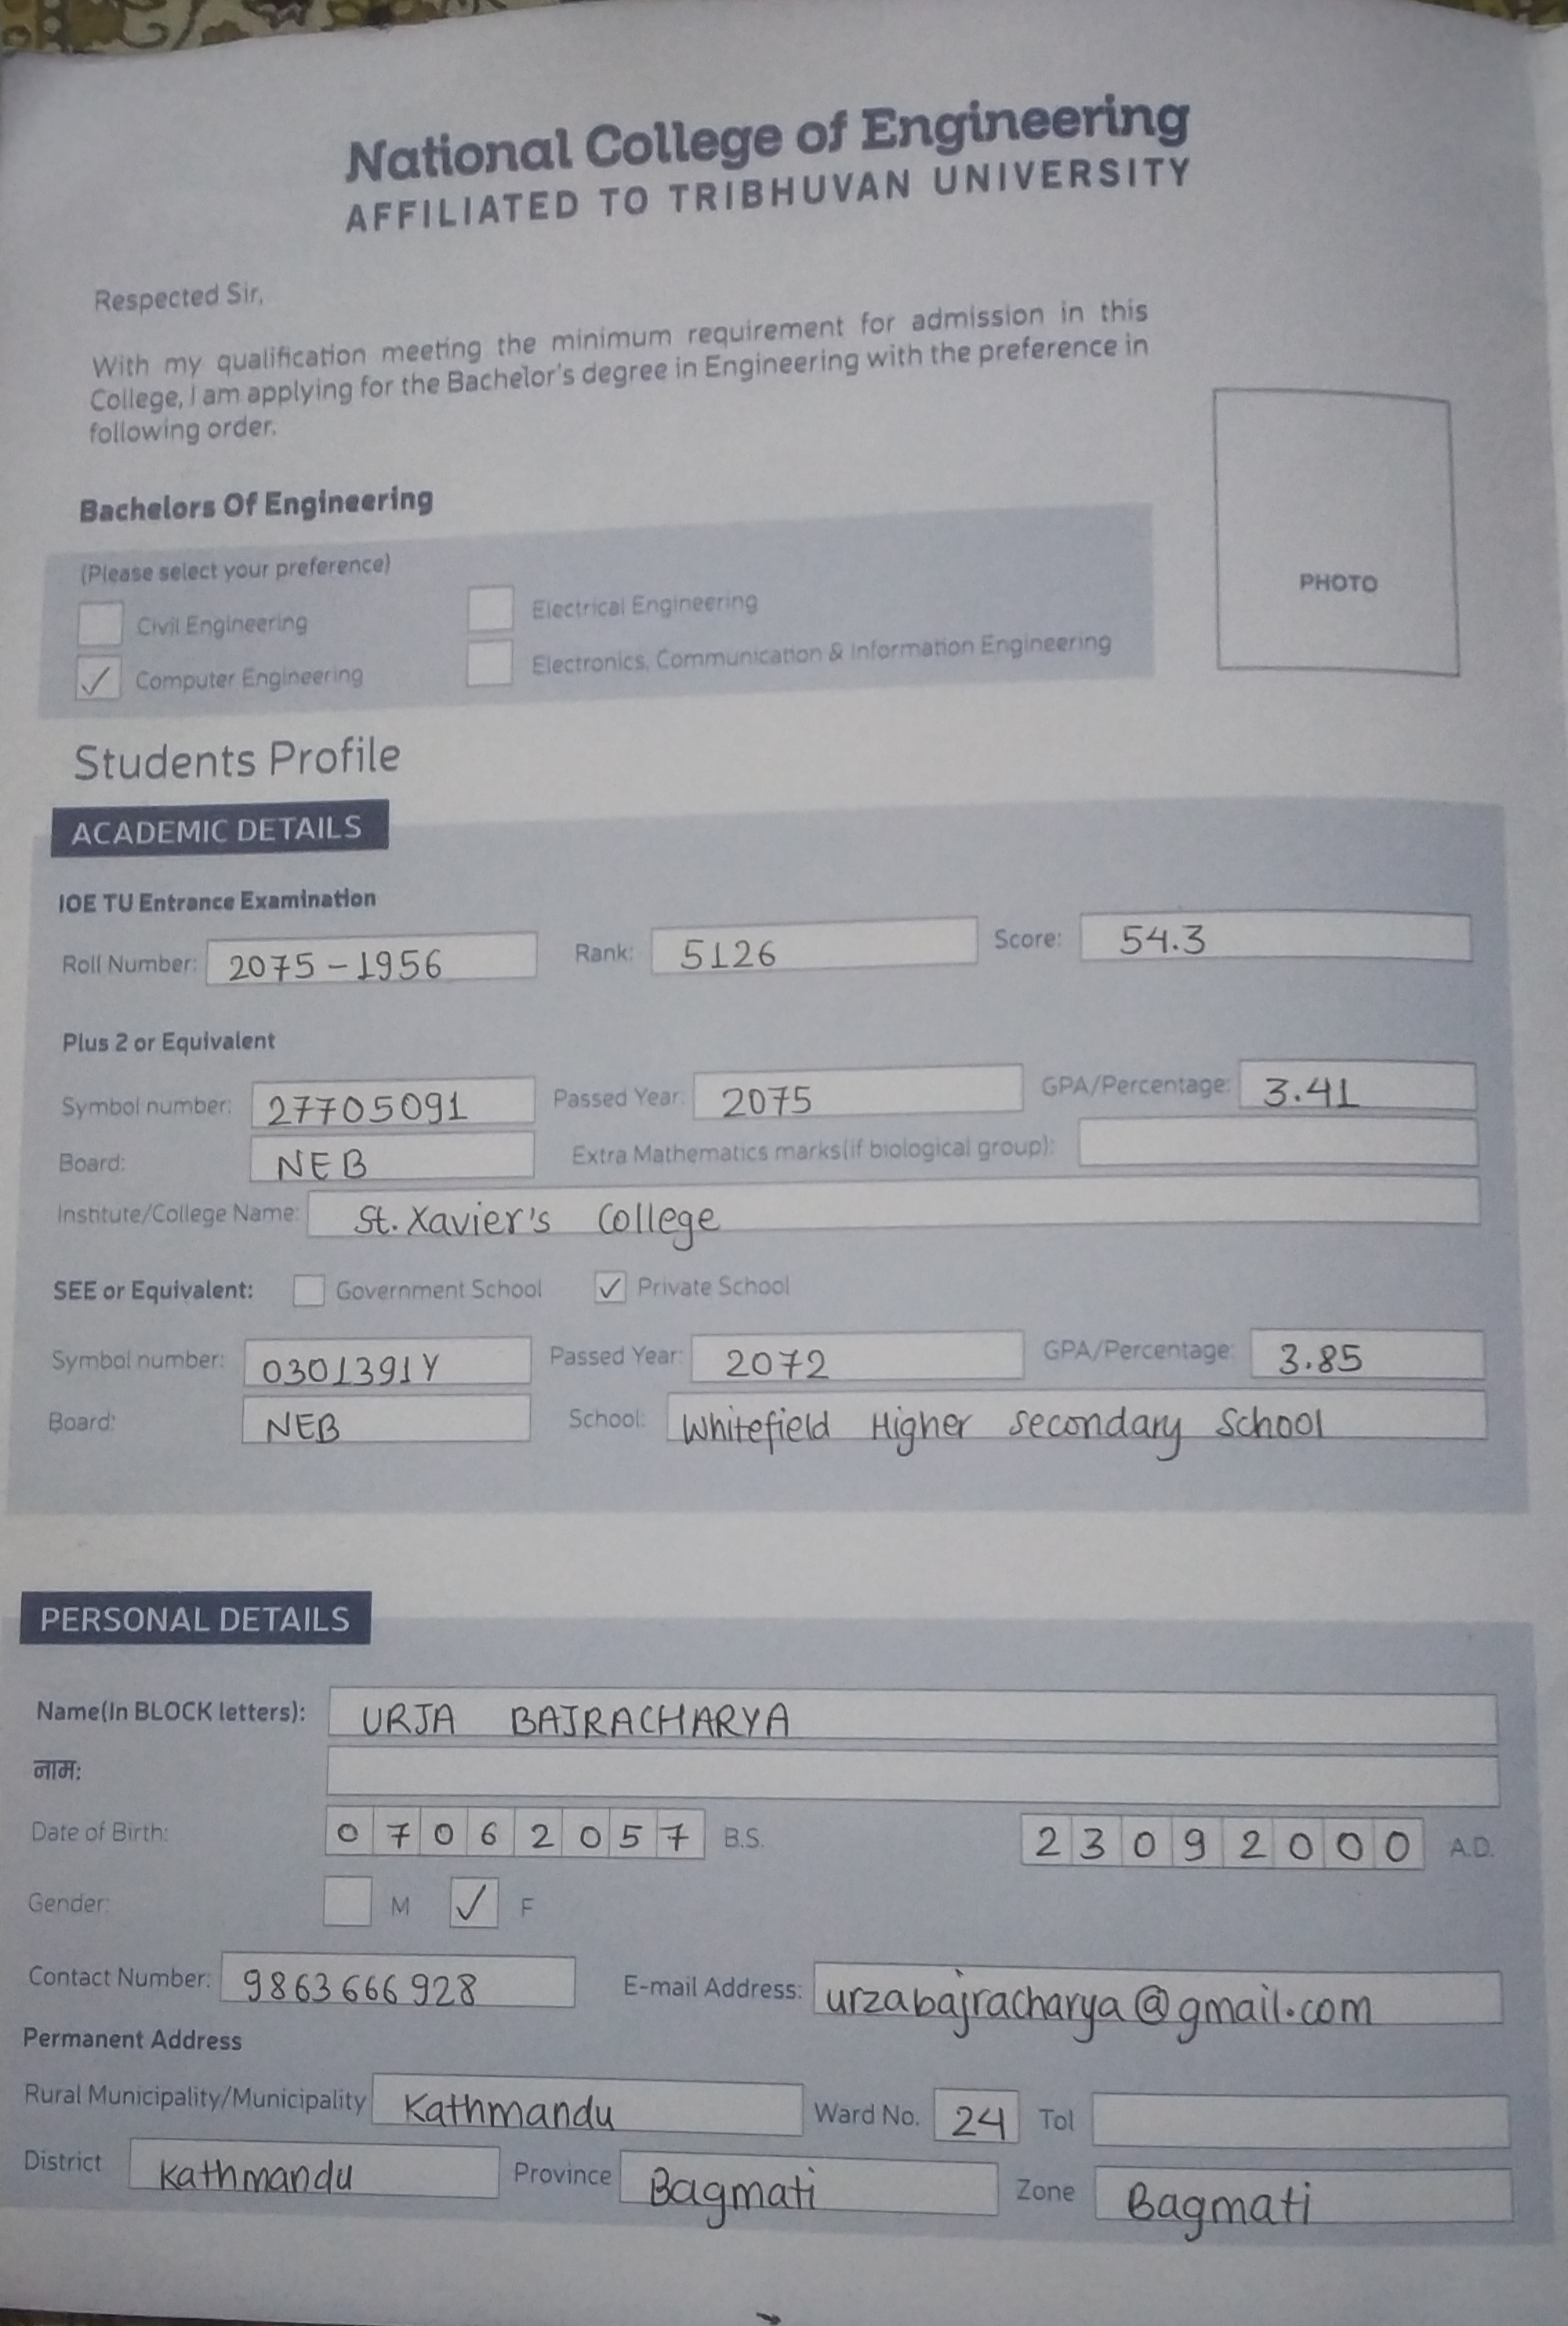 National College of Engineering
AFFILIATED TO TRIBHUVAN UNIVERSITY
Respected Sir,
With my qualification meeting the minimum requirement for admission in this
College, I am applying for the Bachelor's degree in Engineering with the preference in
following order.
PHOTO
Bachelors Of Engineering
(Please select your preference)
Civil Engineering Electrical Engineering
✓ Computer Engineering Electronics, Communication & Information Engineering
Students Profile
ACADEMIC DETAILS
IOE TU Entrance Examination
Roll Number: 2075-1956 Rank: 5126 Score: 54.3
Plus 2 or Equivalent
Symbol number: 27705091 Passed Year: 2075 GPA/Percentage: 3.41
Board: NEB Extra Mathematics marks(if biological group):
Institute/College Name: St. Xavier's College
SEE or Equivalent: Government School ✓ Private School
Symbol number: 0301391Y Passed Year: 2072 GPA/Percentage: 3.85
Board: NEB School: Whitefield Higher Secondary School
PERSONAL DETAILS
Name(In BLOCK letters): URJA BAJRACHARYA
नाम:
Date of Birth: 07062057 B.S. 23092000 A.D.
Gender: M ✓ F
Contact Number: 9863666928 E-mail Address: urzabajracharya@gmail.com
Permanent Address
Rural Municipality/Municipality Kathmandu Ward No. 24 Tol
District Kathmandu Province Bagmati Zone Bagmati